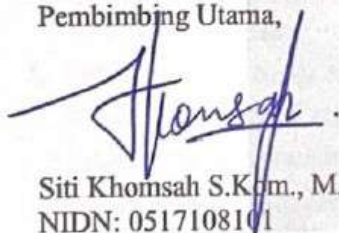 Pembimbing Utama,
Khomsah
Siti Khomsah S.Kom., M.
NIDN: 0517108101